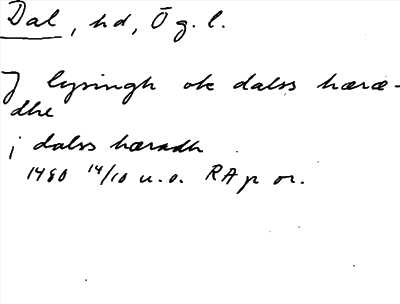 Dal, hd, Ög. l.
J lysingh ok dalss hæræ-
dhe
j dalss hæradh
1480 14/10 u.o. RAp or.